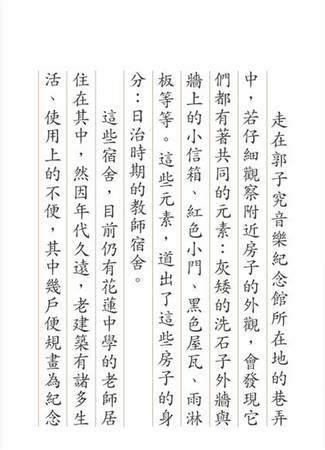 走在郭子究音樂紀念館所在地的巷弄
中，若仔細觀察附近房子的外觀，會發現它
們都有著共同的元素：灰矮的洗石子外牆與
牆上的小信箱、紅色小門、黑色屋瓦、雨淋
板等等。這些元素，道出了這些房子的身
分：日治時期的教師宿舍。
這些宿舍，目前仍有花蓮中學的老師居
住在其中，然因年代久遠，老建築有諸多生
活、使用上的不便，其中幾戶便規畫為紀念